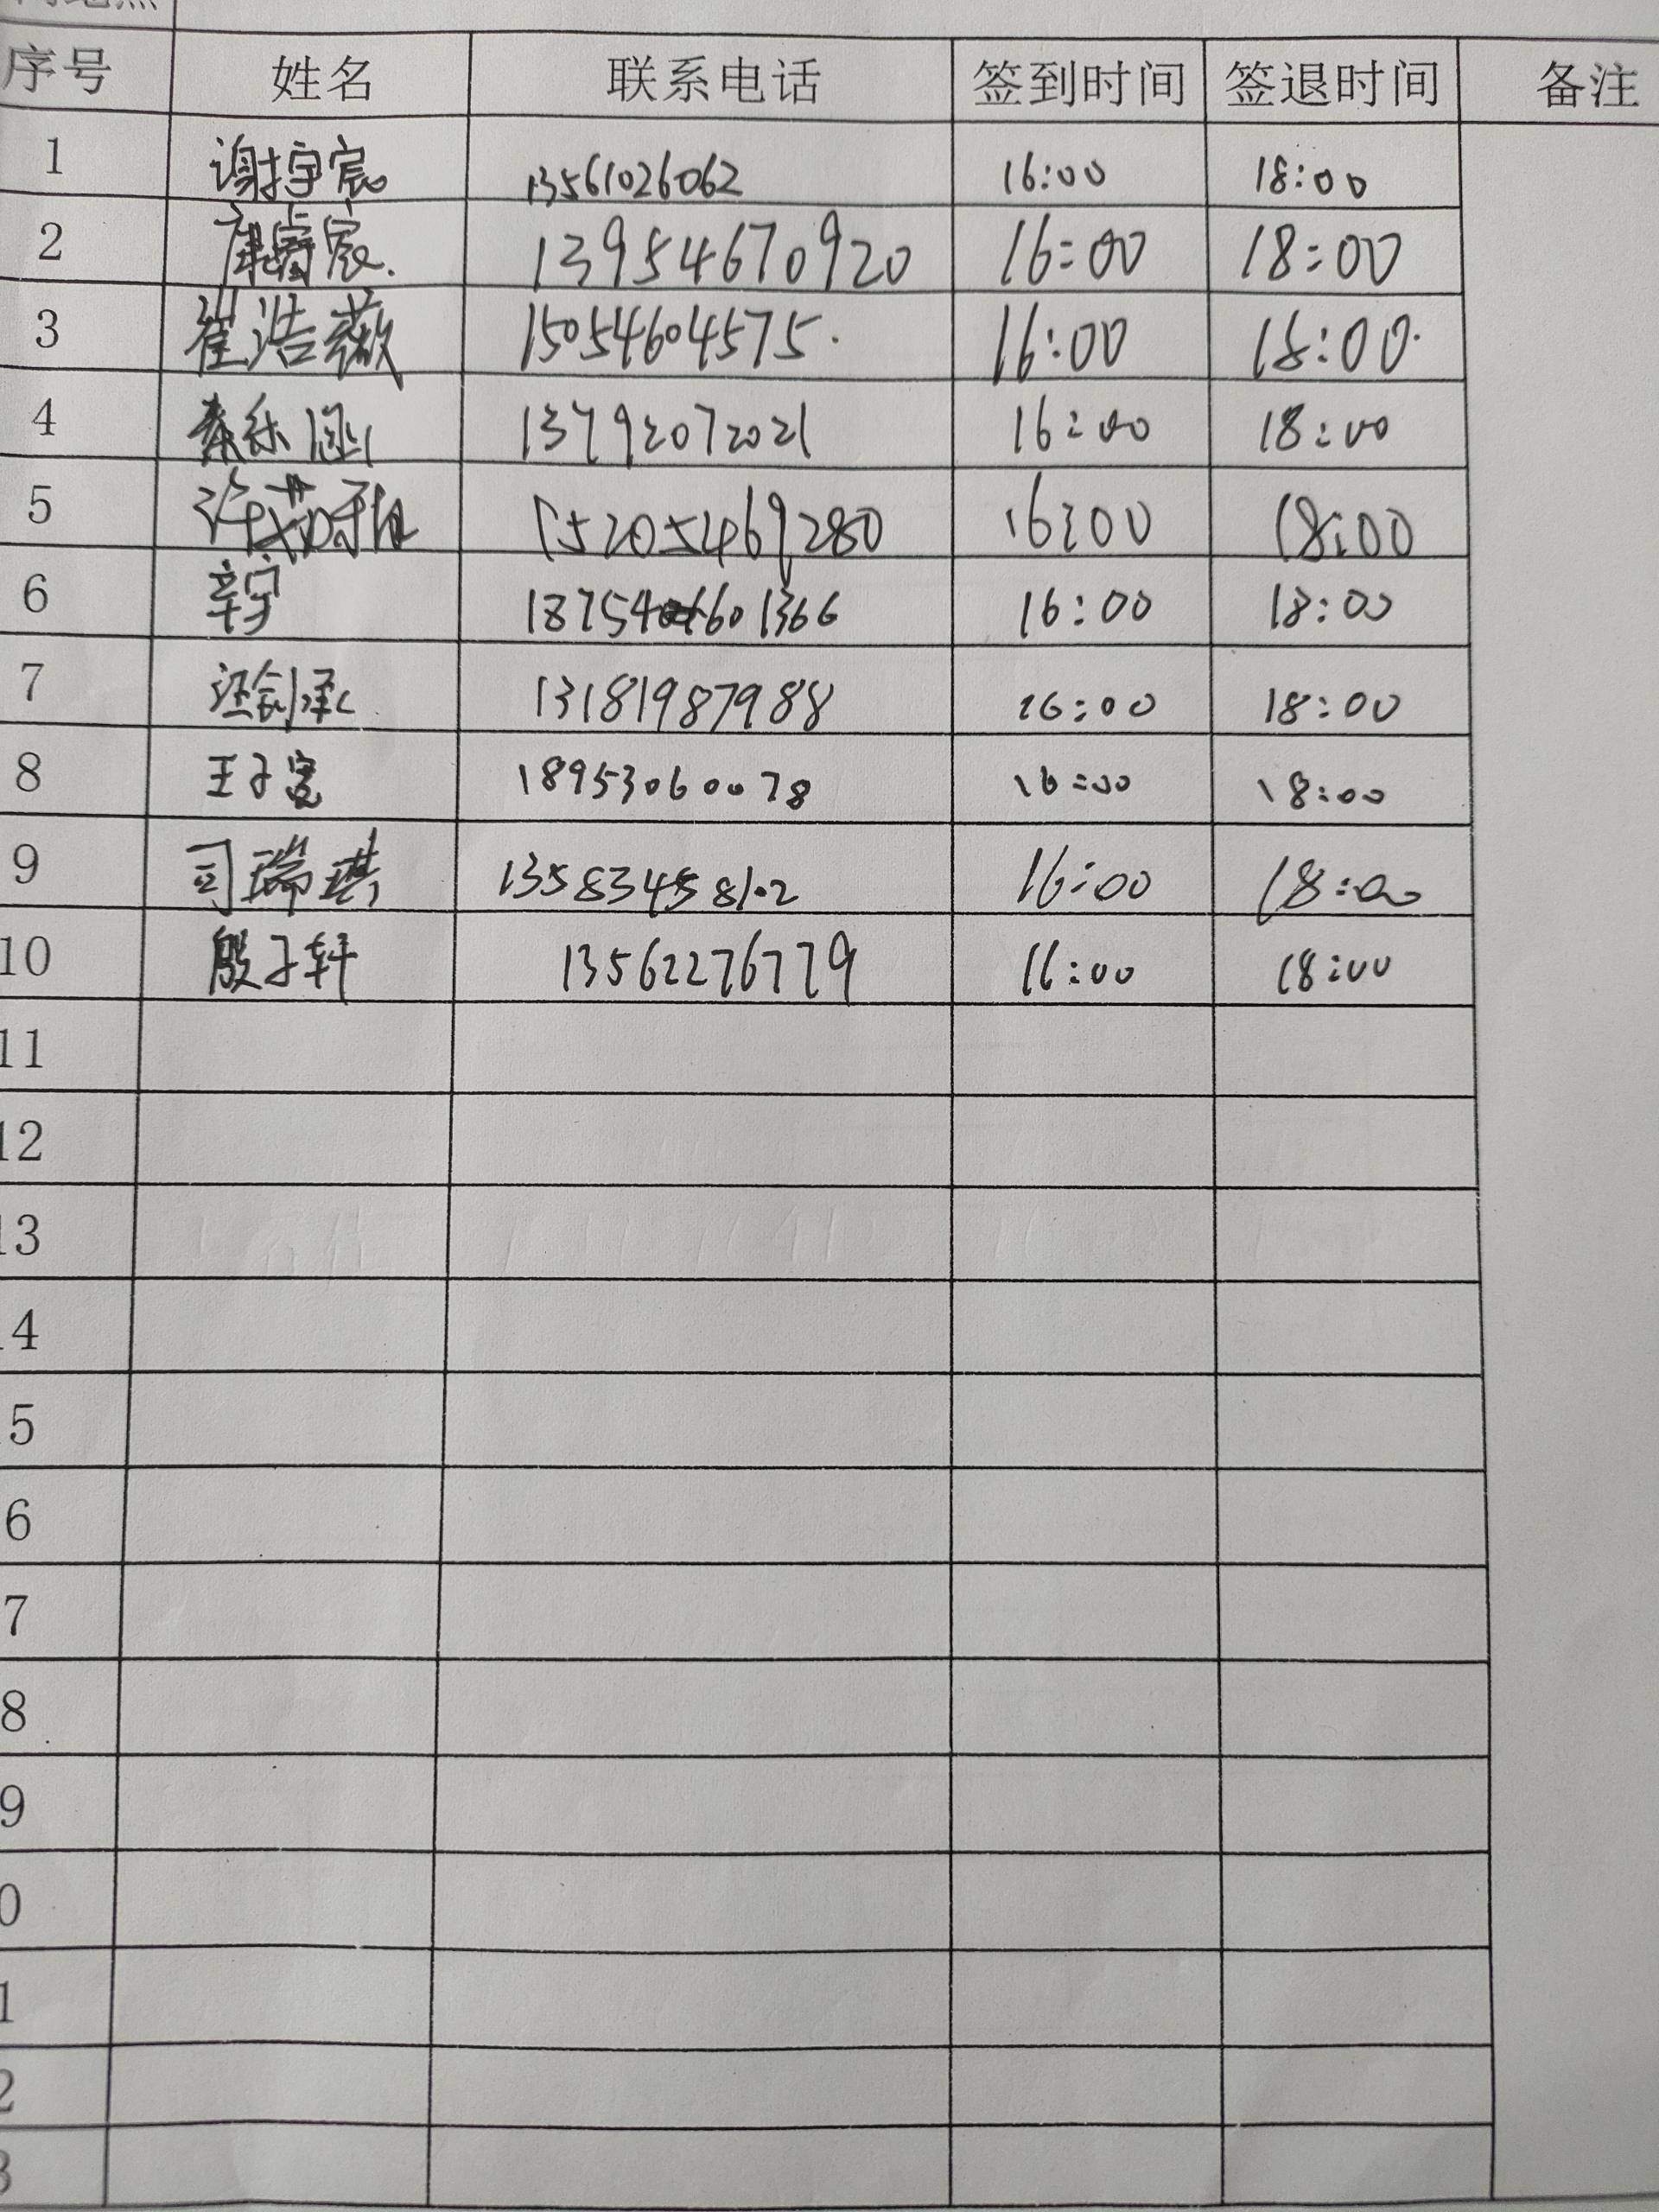 序号 姓名 联系电话 签到时间 签退时间 备注
1 谢抒宸 13561026062 16:00 18:00
2 宸. 13954670920 16:00 18:00
3 崔浩薇 15054604575. 16:00 18:00.
4 秦乐涵 13792072021 16:00 18:00
5 许 15205469280 16:00 18:00
6 辛宇 18754601366 16:00 18:00
7 汪剑承 13181987988 16:00 18:00
8 王子宽 18953060078 16:00 18:00
9 司瑞琪 13583458102 16:00 18:00
10 殷子轩 13562276779 16:00 18:00
11
12
13
4
5
6
7
8
9
0
1
2
3